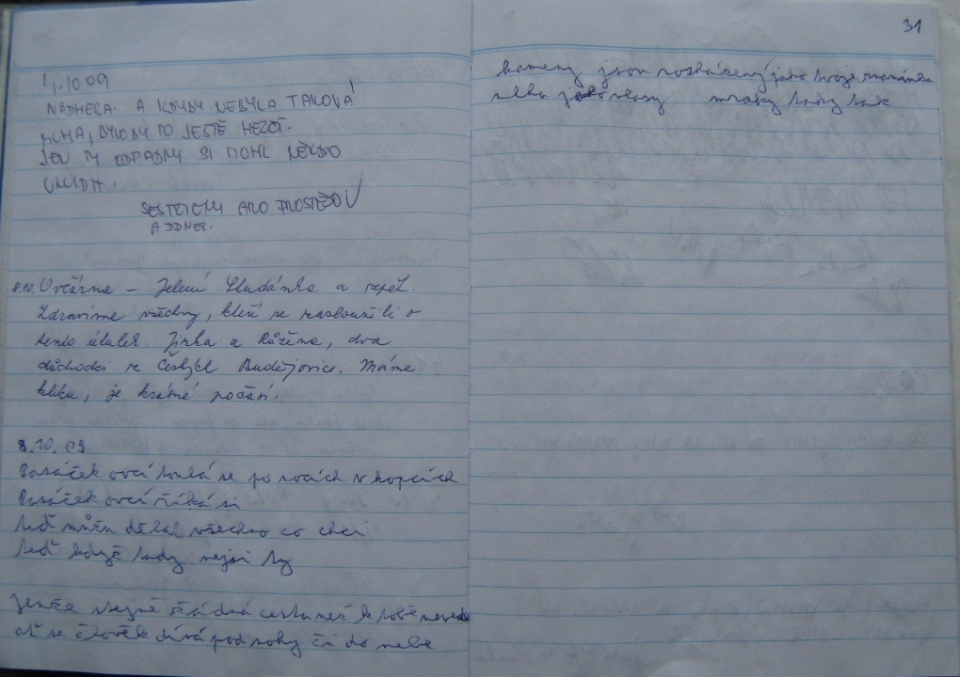 1.10 09
NÁDHERA. A KDYBY NEBYLA TAKOVÁ
MLHA, BYLO BY TO JEŠTĚ HEZČÍ.
JEN TY ODPADKY SI MOHL NĚKDO
A
8.10. Ovčárna – Jelení Studánka a zpět.
Zdravíme všechny, kteří se zasloužili o
tento útulek. Jirka a Růžena, dva
důchodci z Českých Budějovic. Máme
kliku, je krásné počasí.
8.10.09
Pasáček ovcí toulá se po nocích v kopcích
Pasáček ovcí říká si
teď můžu dělat všechno co chci
teď když tady nejsi ty
Jenže stejně žádná cesta než k tobě nevede
ať se člověk dívá pod nohy či do nebe
31
kameny jsou rozházený jako tvoje
nebo jako vlasy mraky taky tak